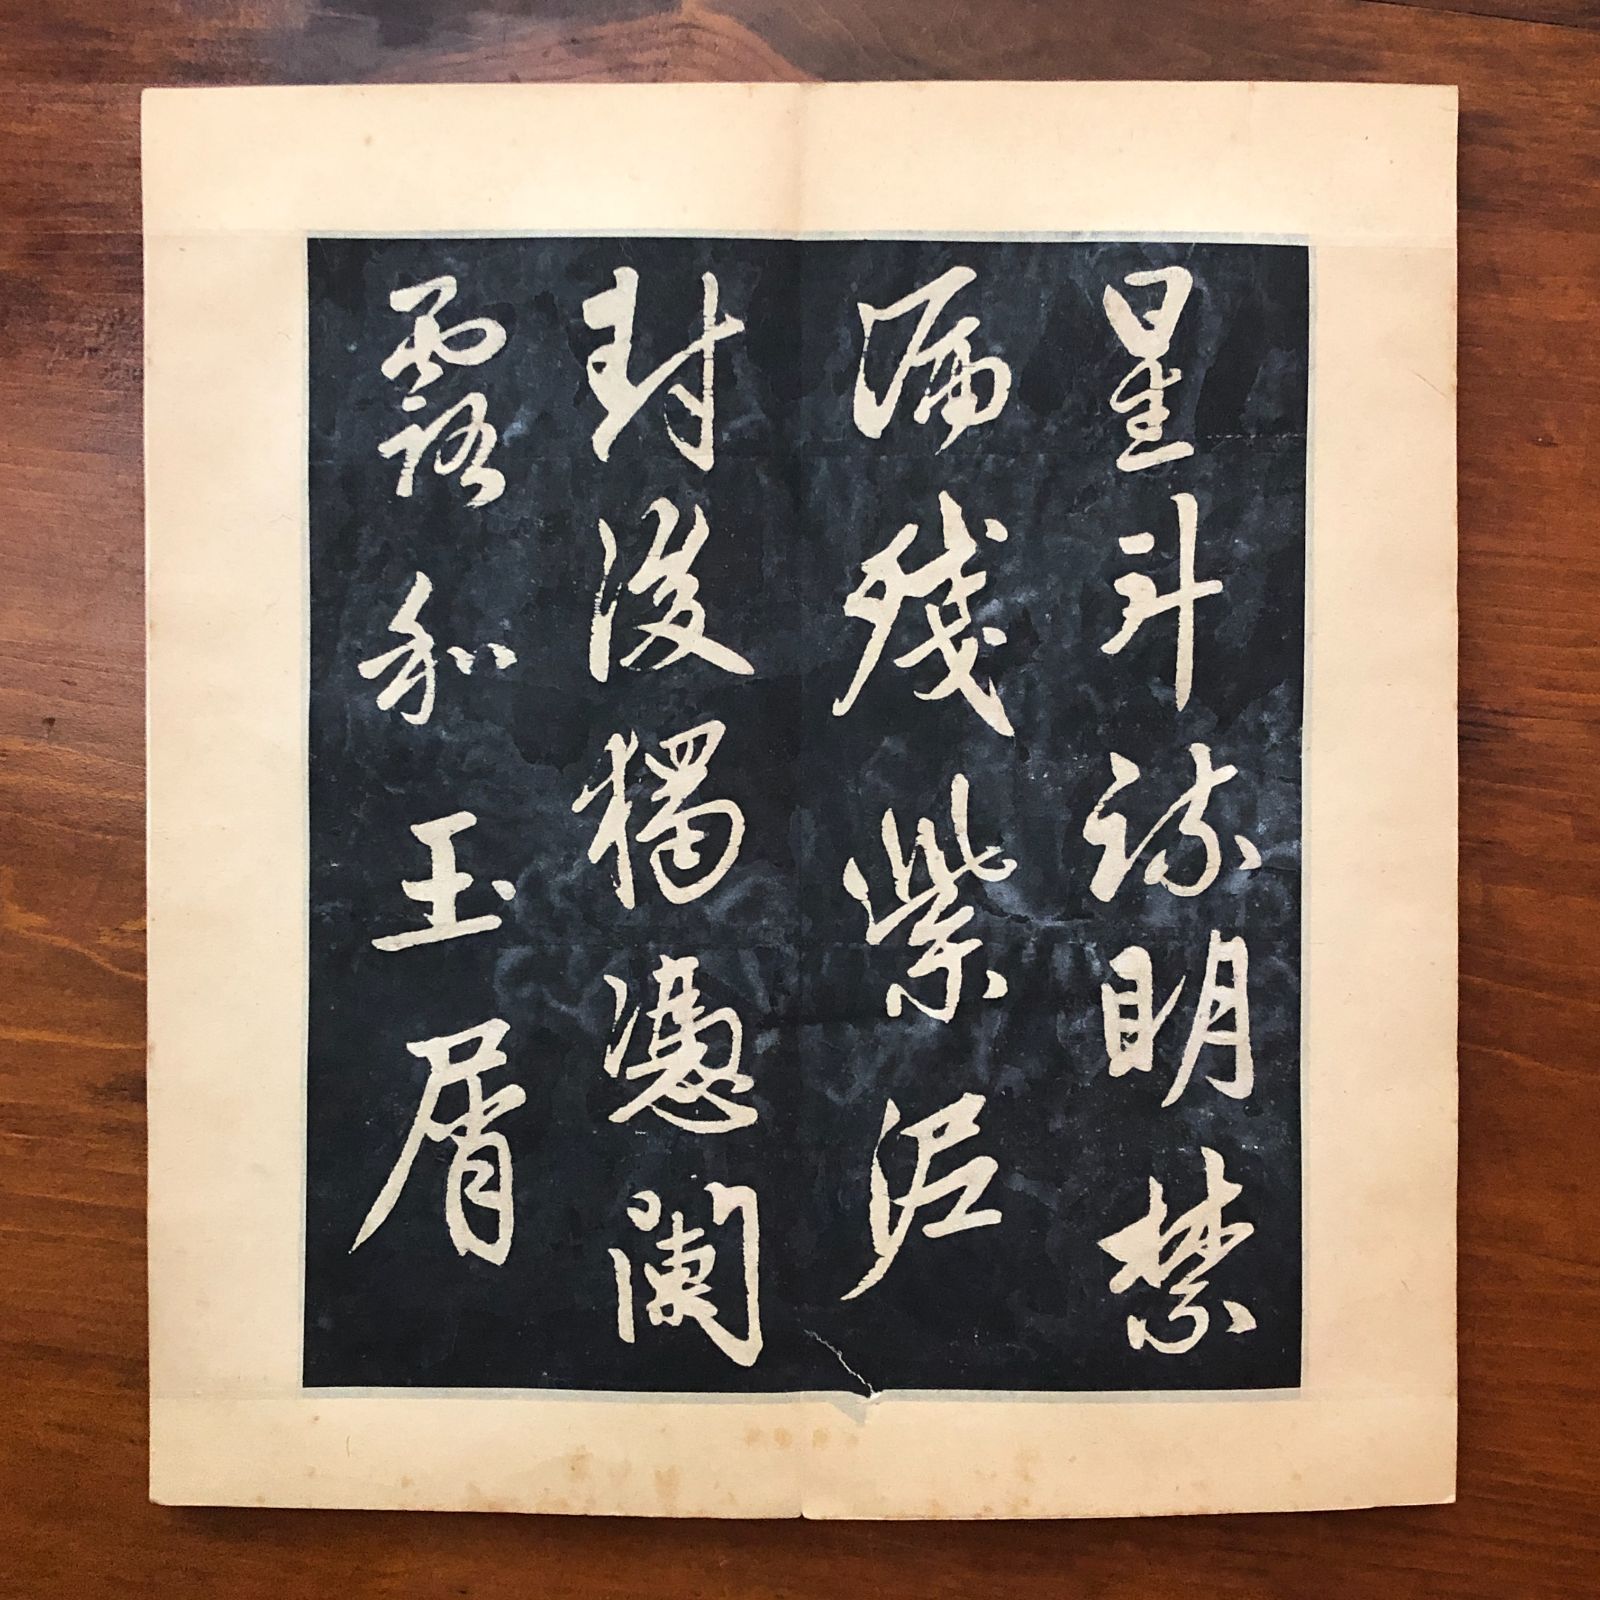 星斗疏明禁
漏殘紫泥
封後獨憑闌
露和玉屑